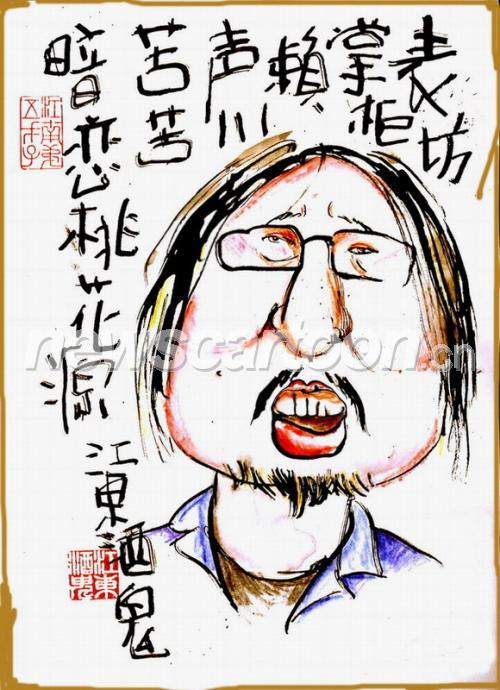 表坊
掌柜
賴
声川
苦苦
暗恋桃花源
江東酒鬼
江東
酒鬼
newscartoon.cn